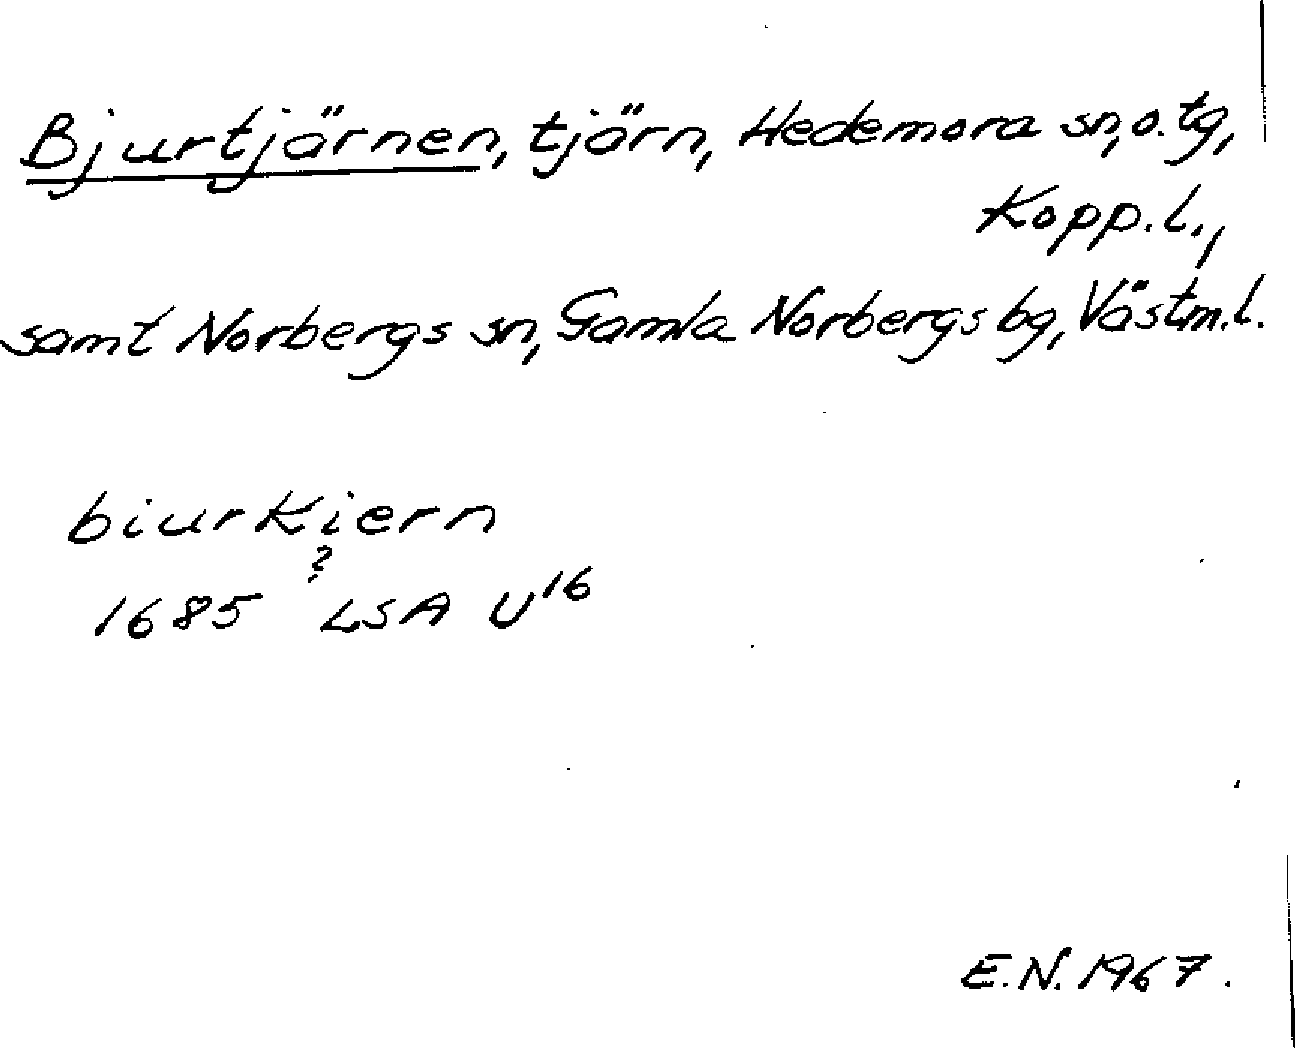 Bjurtjärnen, tjärn, Hedemora sn, o. tg,
Kopp. l.,
samt Norbergs sn, Gamla Norbergs bg, Västm. l.
biurkiern
?
1685 LSA U16
E.N. 1967.